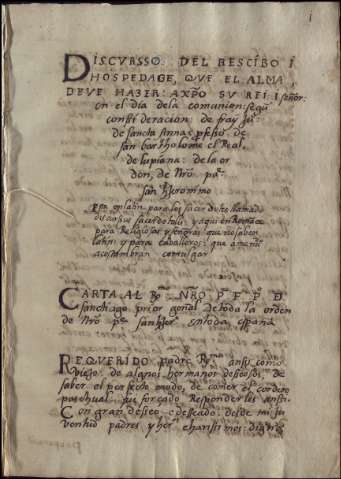 1
DISCVRSSO: DEL RESCIBO I
HOSPEDAGE, QVE EL ALMA,
DEVE HAZER: AXPO SV REI I señor:
en el dia dela comunion: segū
consideracion: de fray
de sancta professo de
san bartholome el Real,
de lupiana: de la or
den, de Nro pe.
san Hieronimo
Esta en latin para los sacerdotes llamado
y aqui en Romāce
para Religiosas y señoras que no saben
latin y para caballeros: que a menu
acostumbran comulgar
CARTA AL Rmo NRO Pe F P D
sanchiago prior gñal de toda la orden
de Nro Pe san en toda españa
REQVERIDO Padre Rmo ansi como
viejo de algunos hermanos desseosos de
saber el perfecto modo, de comer el cordero
paschual fui forçado Responder les ansi:
Con gran desseo e desseado: desde mi ju
ventud padres y charissimos: